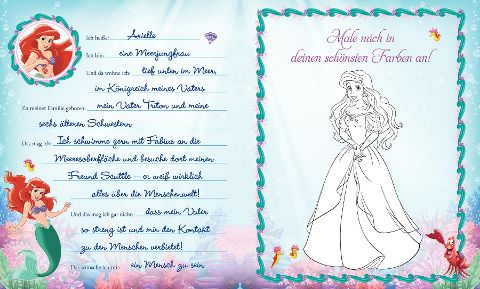 Ich heiße: Arielle
Ich bin: eine Meerjungfrau
Und da wohne ich: tief unten im Meer,
im Königreich meines Vaters
Zu meiner Familie gehören: mein Vater Triton und meine
sechs älteren Schwestern
Das mag ich: Ich schwimme gern mit Fabius an die
Meeresoberfläche und besuche dort meinen
Freund Scuttle – er weiß wirklich
alles über die Menschenwelt!
Und das mag ich gar nicht: dass mein Vater
so streng ist und mir den Kontakt
zu den Menschen verbietet!
Das wünsche ich mir: ein Mensch zu sein
Male mich in
deinen schönsten Farben an!